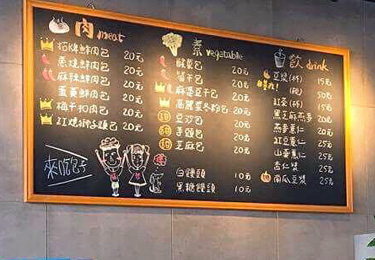 肉 meat
招牌鮮肉包 20元
蔥燒鮮肉包 20元
麻辣鮮肉包 20元
蛋黃鮮肉包 20元
梅干扣肉包 20元
紅燒獅子頭包 20元
來吃包子
素 vegetable
酸菜包 20元
筍干包 20元
麻婆豆干包 20元
高麗菜冬粉包 20元
豆沙包 20元
芋頭包 20元
芝麻包 20元
白饅頭 10元
黑糖饅頭 10元
飲 drink
豆漿(杯) 15元
(瓶) 50元
紅茶(杯) 15元
黑芝麻燕麥 20元
燕麥薏仁 20元
紅豆薏仁 25元
山藥薏仁 25元
杏仁漿 25元
南瓜豆漿 25元